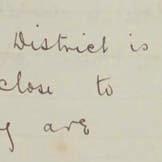 District is
close to
y are